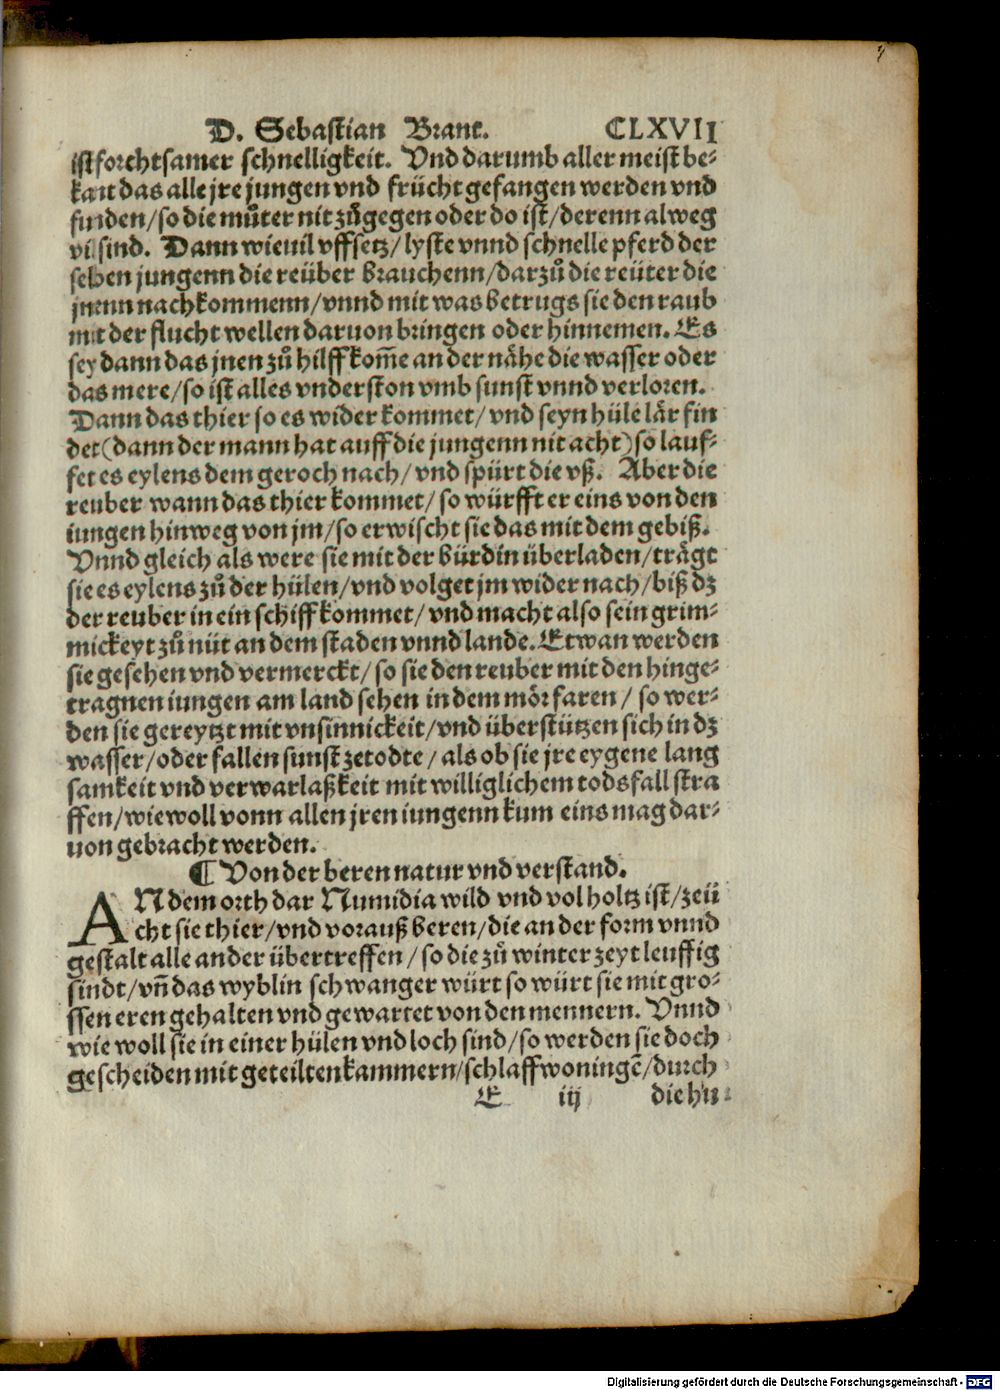 D. Sebastian Brant. CLXVII
ist forchtsamer schnelligkeit. Vnd darumb aller meist be⸗
kant das alle jre jungen vnd frücht gefangen werden vnd
finden/so die můter nit zůgegen oder do ist/derenn alweg
vil sind. Dann wieuil vffsetz/lyste vnnd schnelle pferd der
selben jungenn die reüber brauchenn/darzů die reüter die
jnenn nachkommenn/vnnd mit was betrugs sie den raub
mit der flucht wellen daruon bringen oder hinnemen. Es
sey dann das jnen zů hilff kom̄e an der nähe die wasser oder
das mere/so ist alles vnderston vmb sunst vnnd verloren.
Dann das thier so es wider kommet/vnd seyn hüle lär fin
det(dann der mann hat auff die jungenn nit acht)so lauf⸗
fet es eylens dem geroch nach/vnd spürt die vß. Aber die
reuber wann das thier kommet/so würfft er eins von den
iungen hinweg von jm/so erwischt sie das mit dem gebiß.
Vnnd gleich als were sie mit der bürdin überladen/trägt
sie es eylens zů der hülen/vnd volget jm wider nach/biß dz
der reuber in ein schiff kommet/vnd macht also sein grim⸗
mickeyt zů nüt an dem staden vnnd lande. Etwan werden
sie gesehen vnd vermerckt/so sie den reuber mit den hinge⸗
tragnen iungen am land sehen in dem mör faren/so wer⸗
den sie gereytzt mit vnsinnickeit/vnd überstützen sich in dz
wasser/oder fallen sunst zetodte/als ob sie jre eygene lang
samkeit vnd verwarlaßkeit mit williglichem tods fall stra
ffen/wiewoll vonn allen jren iungenn kum eins mag dar⸗
uon gebracht werden.
¶ Von der beren natur vnd verstand.
ANdem orth dar Numidia wild vnd vol holtz ist/zeü
cht sie thier/vnd vorauß beren/die an der form vnnd
gestalt alle ander übertreffen/so die zů winter zeyt leuffig
sindt/vn̄ das wyblin schwanger würt so würt sie mit gro⸗
ssen eren gehalten vnd gewartet von den mennern. Vnnd
wie woll sie in einer hülen vnd loch sind/so werden sie doch
gescheiden mit geteilten kammern/schlaffwoningē/durch
E iij die hü⸗
Digitalisierung gefördert durch die Deutsche Forschungsgemeinschaft - DFG